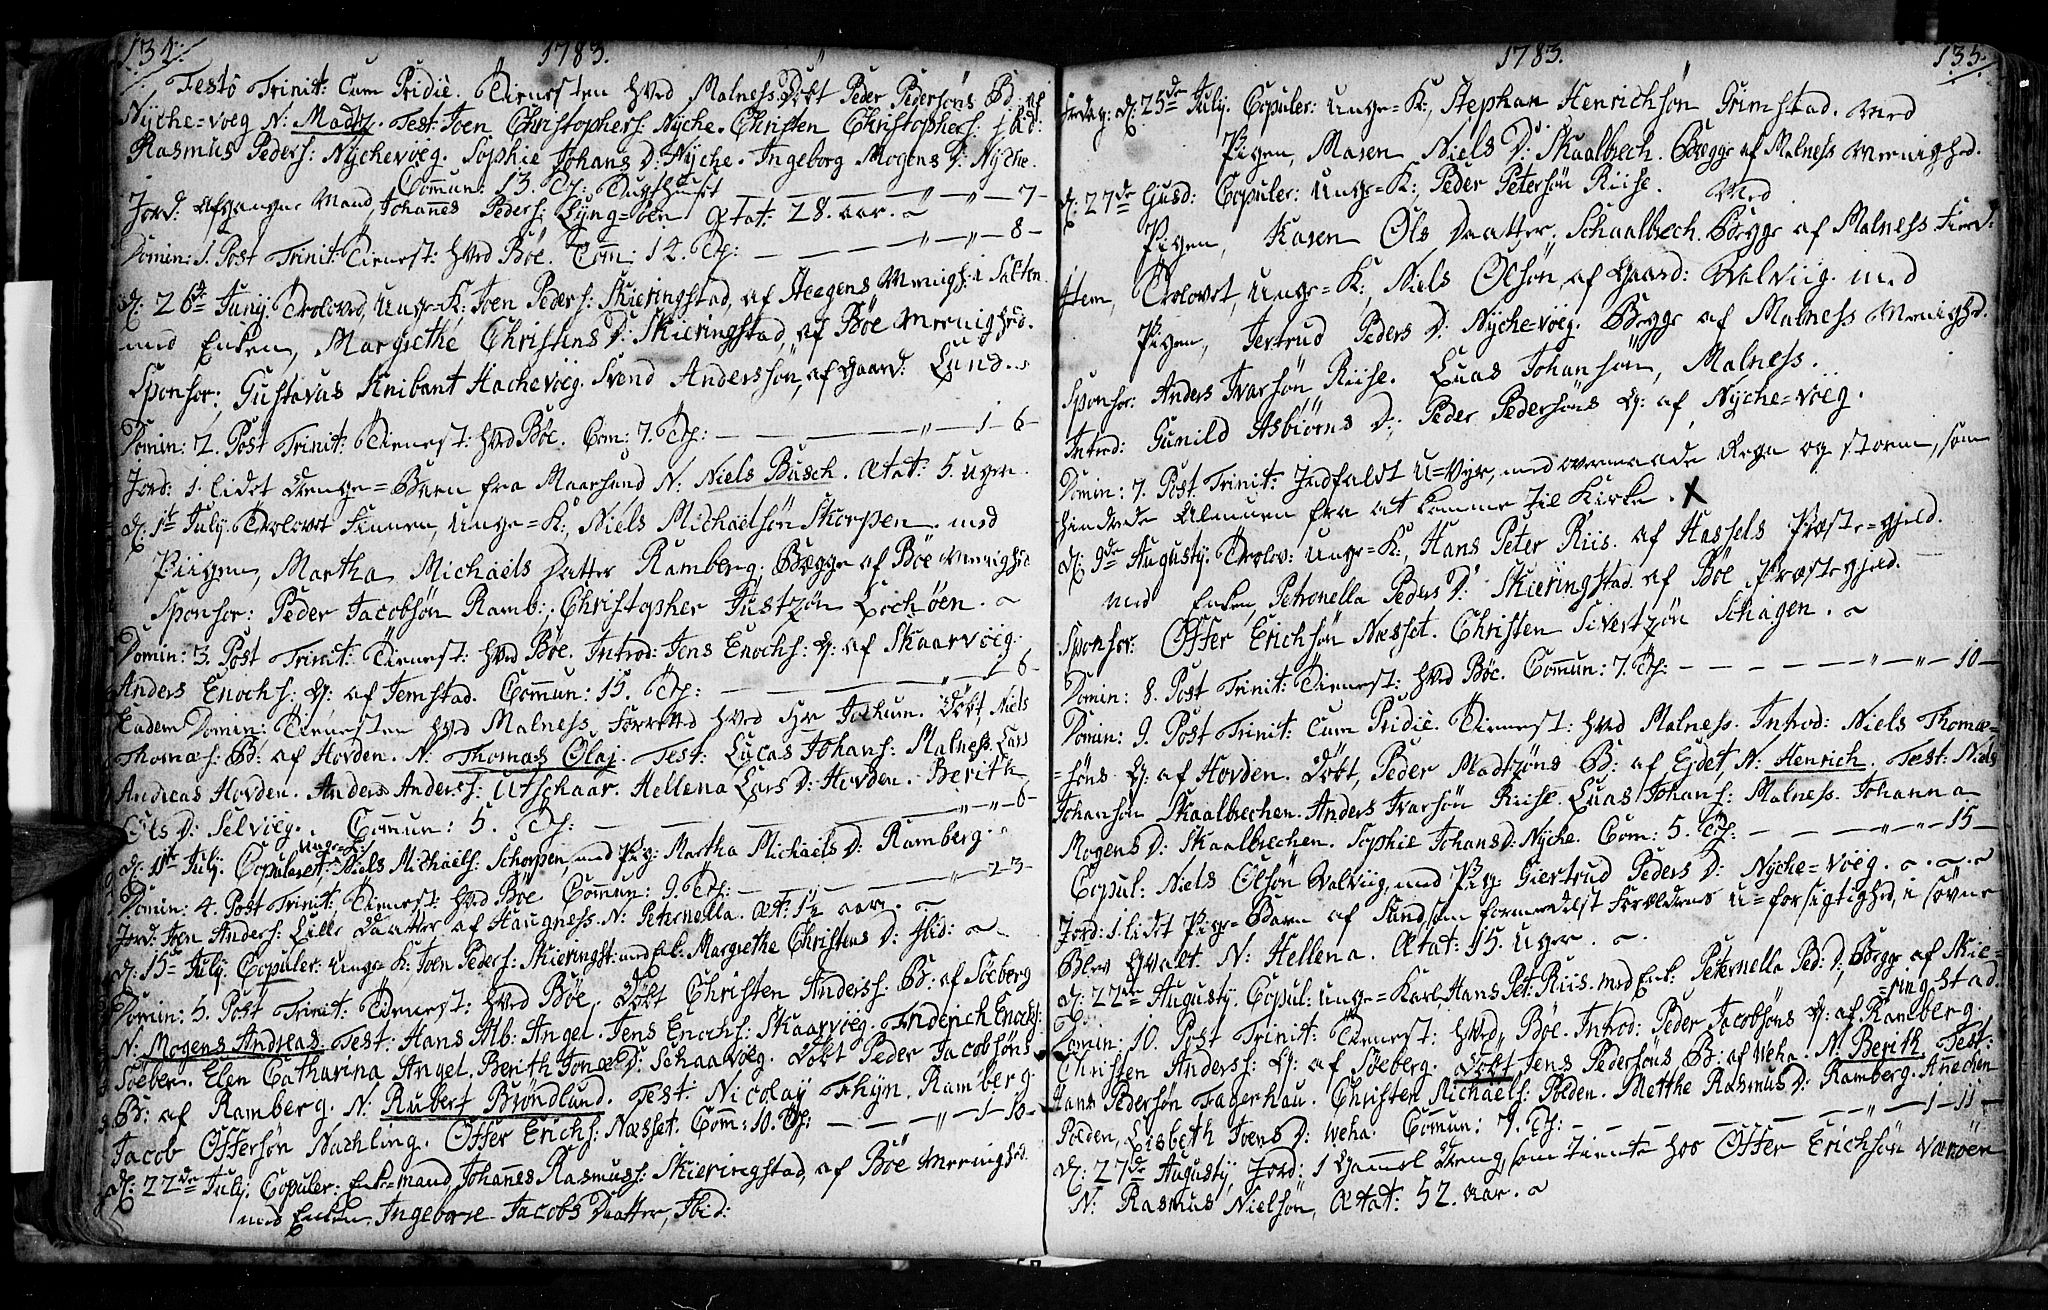 134.
1783.
Festo Trinit: Cum Pridie. Tienesten hved Malness. Döbt Peder Pedersöns B: af
Nyche=voeg N: Madtz. Test: Joen Christophers: Nyche. Christen Christophers: Ibid:
Rasmus Peders: Nychevoeg. Sophie Johans D: Nyche. Ingeborg Mogens D: Nyche.
Commun: 13.
Jord: Mand, Johannes Peders: Lyng=öen Ætat: 28. aar. 7-
Domin: 1. Post Trinit: Tienest: hved Böe. Com: 14. 8-
d: 26de Juny. Trolovd, Unge=K: Joen Peders: Skieringstad, af Menigh: i Salten
med Enken, Margrethe Christens D: Skieringstad, af Böe Menighed.
Sponsor: Gustavus Knibant Hachevoeg. Svend Anderssön, af Gaard: Lund.
Domin: 2. Post Trinit: Tienest: hved Böe. Com: 7. 1-6-
Jord: 1. lidet Drenge=Barn fra Maarsund N: Niels Busch. Ætat: 5. Uger.
d: 1te July. Trolovet Unge=K: Niels Michaelsön Skorpen. med
Piigen, Martha Michaels Datter Ramberg. Begge af Böe Menighed
Sponsor: Peder Jacobsön Ramb:, Christopher Justzön Lochöen.
Domin: 3. Post Trinit: Tienest: hved Böe. Introd: Jens Enochs: H: af Skaarvoeg.
Anders Enochs: H: af Jemstad. Commun: 15. 1-6-
Eadem Domin: Tienesten hved Malness. Forretted hved Hr Jochum. Döbt Niels
Thomæs: B: af Hovden. N: Thomas Olaj. Test: Lucas Johans: Malness. Lars
Andreas Hovden. Anders Anders: Utschaar. Hellena Lars D: Hovden. Berith
Ols D: Selvoeg. Commun: 5. 6-
d: 11te July. Copuleret, Unge=K: Niels Michaels: Schorpen, med Pig: Martha Michaels D: Ramberg.
Domin: 4. Post Trinit: Tienest: hved Böe Commun: 9. 2-3-
Jord: Joen Anders: Lille Daatter af Haugness. N: Peternella. Æt: 1½ aar.
d: 15de July. Copuler: Unge=K: Joen Peders: Skieringst: med Enk: Margrethe Christens D: Ibid:
Domin: 5. Post Trinit: Tienest: hved Böe. Döbt Christen Anderss: B: af Söeberg
N: Mogens Andreas. Test: Hans Alb: Angel. Jens Enochs: Skaarvoeg. Friderich Enochs:
Söeber. Elen Catharina Angel. Berith Jonæ D: Schaarvoeg. Döbt Peder Jacobsöns
B: af Ramberg. N: Rubert Bröndlund. Test: Nicolay Thyn. Ramberg.
Jacob Offersön Nachling. Offer Erichs: Næsset. Com: 10. 1-10-
d: 22de July. Copuler: Enke=mand, Johannes Rasmuss: Skieringstad, af Böe Menighed.
med Enken Ingeborg Jacobs Daatter, Ibid:
1783.
135.
Fredag: d: 25de July. Copuler: Unge=K:, Stephan Henrichsön Grimstad. Med
Pigen, Maren Niels D: Skaalbrech. Begge af Malness Menighed.
d: 27de Ejusd: Copuler: Unge=K: Peder Petersön Riise. Med
Pigen, Karen Ols Daatter, Schaalbrech. Begge af Malness Fierd:
Item, Trolovet, Unge=K:, Niels Olsön, af Gaard: Walviig. med
Pigen, Jertrud Peders D: Nyche=voeg. Begge af Malness Menighed.
Sponsor: Anders Ivarsön Riise. Lucas Johansön, Malness.
Introd: Gunild Asbiörns D:, Peder Pedersöns H: af, Nyche=voeg.
Domin: 7. Post Trinit: Indfaldt U=Vejr, med overmaade Regn og storm, som
hindrede Almuen fra at komme til Kirke. X
d: 9de Augusty. Trolov: Unge=K:, Hans Peter Riis. af Hassels Præste=gjeld.
med Enken, Petronella Peders D: Skieringstad. af Böe Præstegjeld.
Sponsor: Offer Erichsön Næsset. Christen Sivertzön Schagen.
Domin: 8. Post Trinit: Tienest: hved Böe. Commun: 7. 10-
Domin: 9. Post Trinit: Cum Pridie. Tienest: hved Malness. Introd: Niels Thomæ=
=söns H: af Hovden. Döbt, Peder Madtzöns B: af Ejdet, N: Henrich. Test: Niels
Johansön Skaalbrechen. Anders Ivarsön Riise. Lucas Johans: Malness. Johanna
Mogens D: Skaalbrechen. Sophie Johans D: Nyche. Com: 5. 15-
Copul: Niels Olsön Walviig, med Pig: Giertrud Peders D: Nyche=voeg.
Jord: 1. lidet Pige=Barn af Sund, som formedelst Forældrenes U=forsigtighed, i sövne
Blev Qvalt. N: Hellena. Ætat: 15. Uger.
d: 22de Augusty. Copul: Unge=Karl, Hans Pet: Riis. med Enk: Peternella Ped: D:, Begge af Skie=
=ringstad.
Domin: 10. Post Trinit: Tienest: hved, Böe. Introd: Peder Jacobsöns H: af Ramberg.
Christen Anderss: H: af Söeberg. Döbt Jens Pedersöns B: af Weha. N: Berith. Test:
Hans Pedersön Fagerhau. Christen Michaels: Polden. Metthe Rasmus D: Ramberg. Anechen
Polden, Lisbeth Joens D: Weha. Commun: 7. 1-11-
d: 27de Augusty, Jord: 1 Gammel Dreng, som tiente hos Offer Erichsön Væröen
N: Rasmus Nielsön, Ætat: 52. Aar.